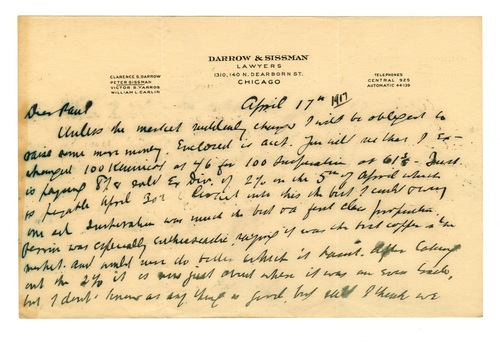 DARROW & SISSMAN
LAWYERS
1310, 140 N. DEARBORN ST.
CHICAGO
CLARENCE S. DARROW
PETER SISSMAN
VICTOR S. YARROS
WILLIAM L. CARLIN
TELEPHONES
CENTRAL 925
AUTOMATIC 44139
April 17th 1917
Dear Paul
Unless the market suddenly changes I will be obliged to
raise some more money. Enclosed is act. You will see that I Ex-
changed 100 Kennicot at 46 for 100 Inspiration at 61½
is paying 8% & sold Ex Div. of 2% on the 5th of April which
is payable April 30th I looked into this the best I could & every
one said Inspiration was much the best on a first class proposition.
was especially enthusiastic, saying it was the best copper in the
market. and would even do better which it hasn't. After taking
out the 2% it is now just about where it was an even trade,
but I don't know as any thing is good, but still I think we